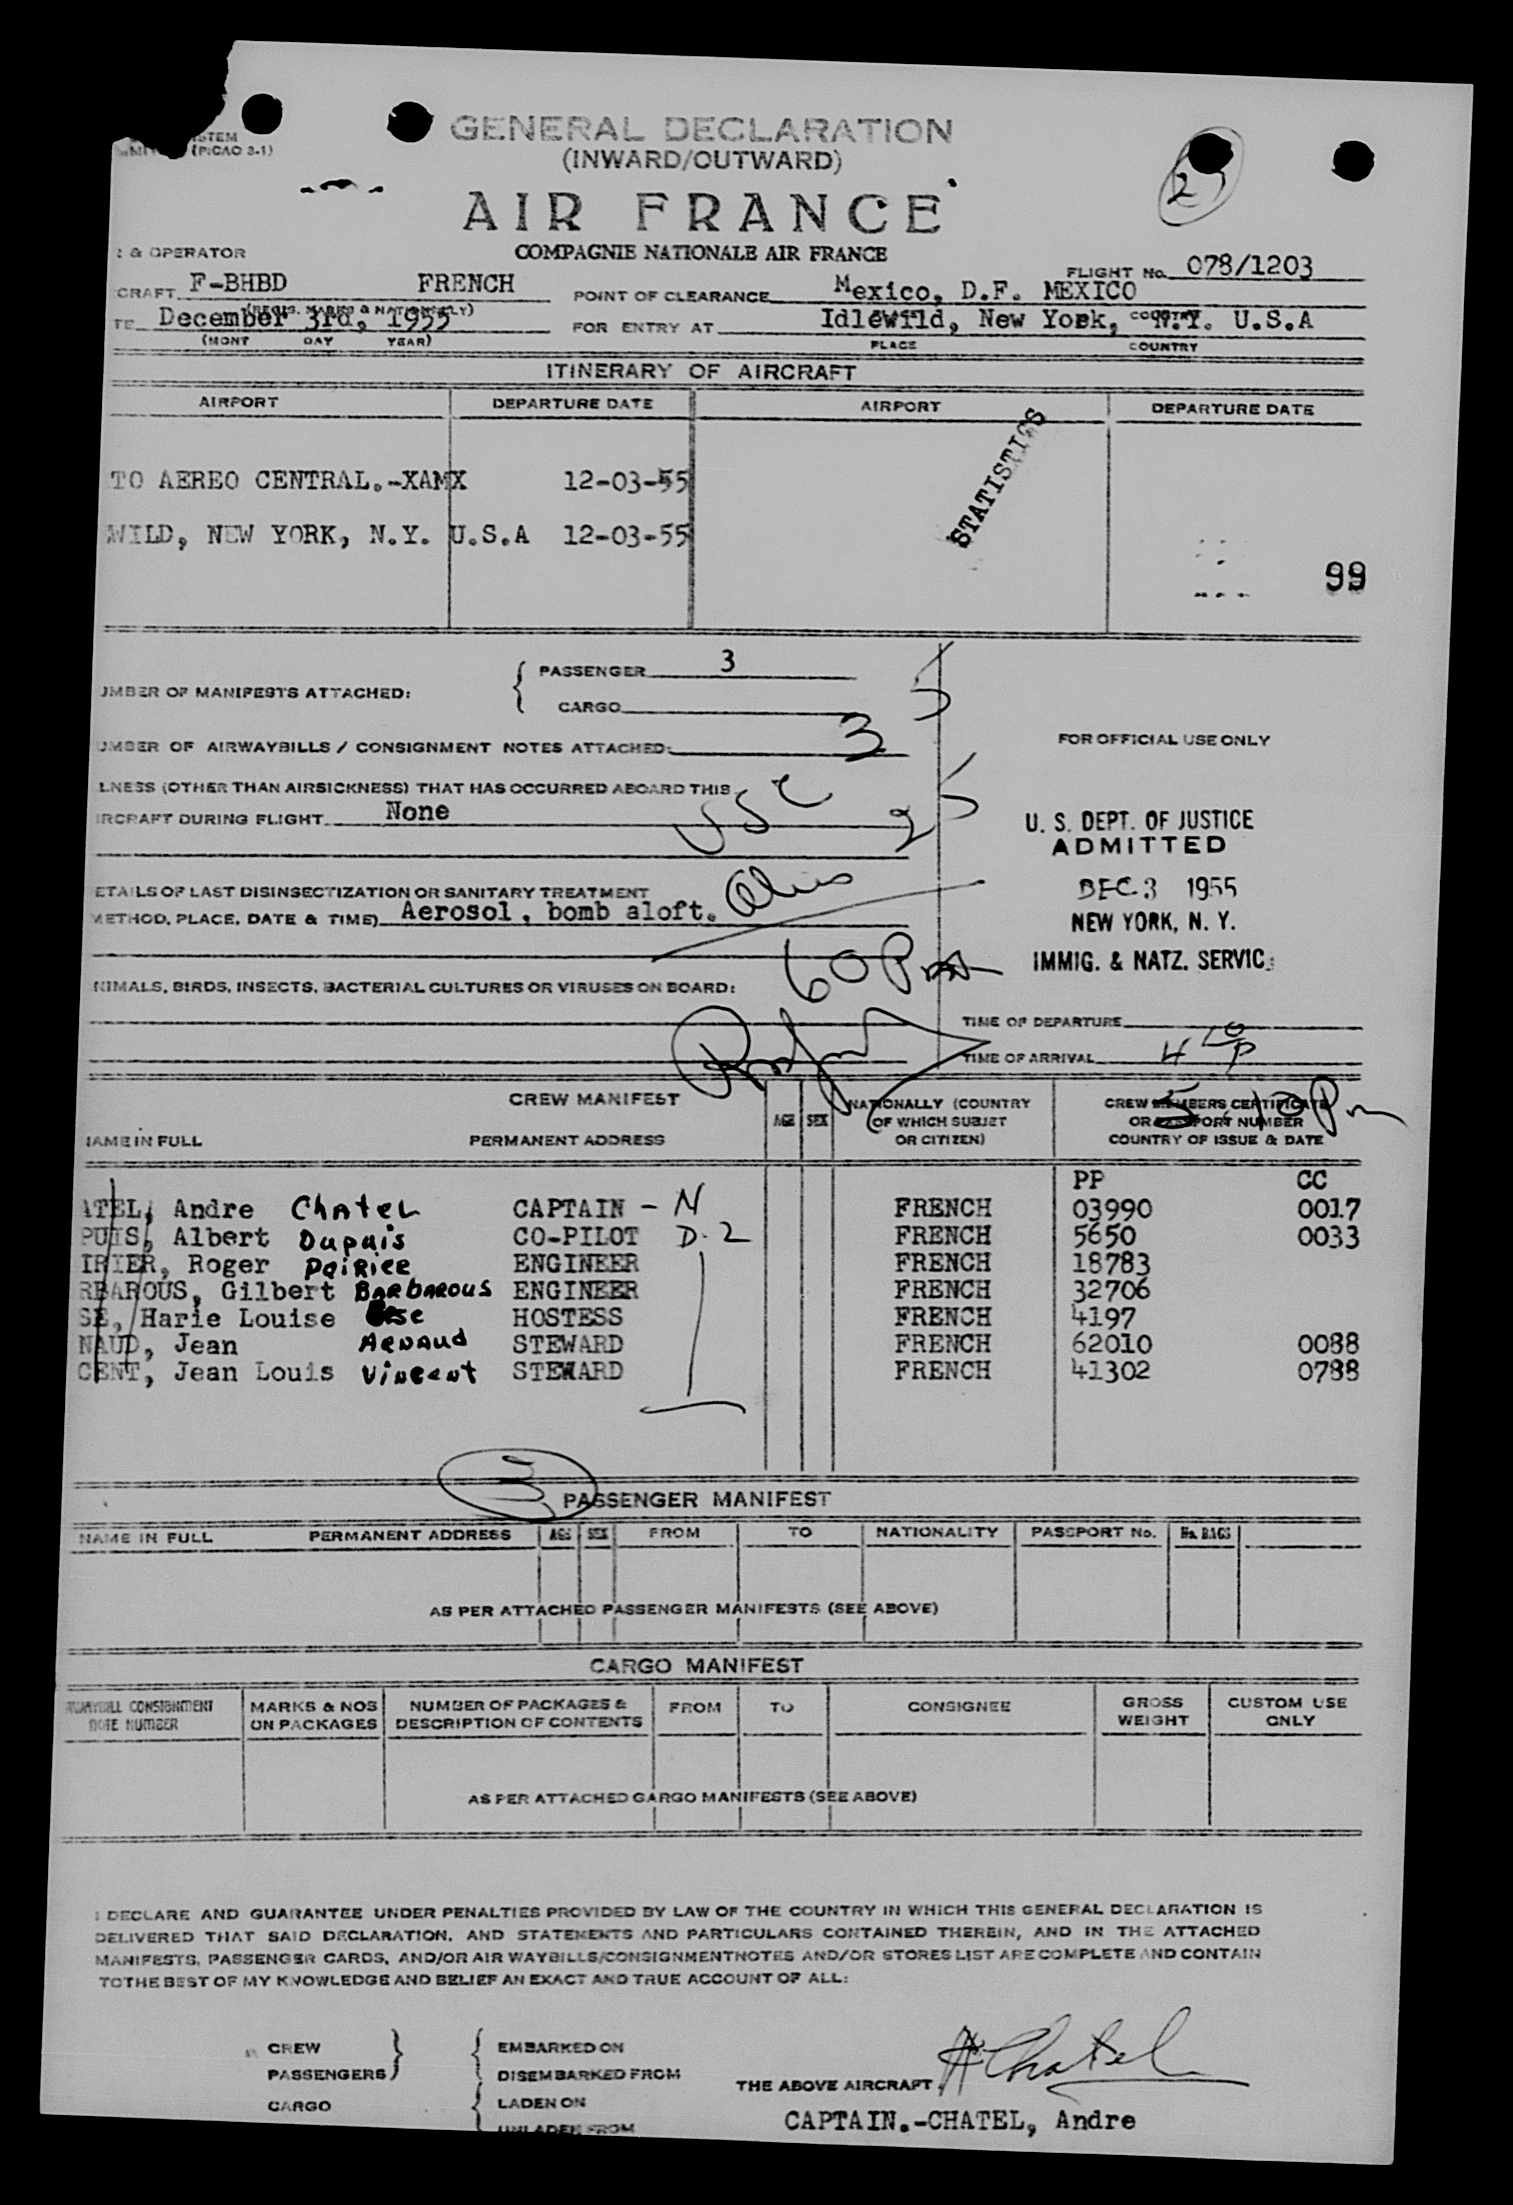 STEM
(PICAO 3-1)
GENERAL DECLARATION
(INWARD/OUTWARD)
AIR FRANCE
COMPAGNIE NATIONALE AIR FRANCE
& OPERATOR
FLIGHT No. 078/1203
CRAFT F-BHBD FRENCH
POINT OF CLEARANCE Mexico, D.F. MEXICO
(REGIS. MARKS & NATIONALITY)
COUNTRY
TE December 3rd, 1955
FOR ENTRY AT Idlewild, New York, N.Y. U.S.A
(MONT DAY YEAR)
PLACE COUNTRY
ITINERARY OF AIRCRAFT
AIRPORT DEPARTURE DATE AIRPORT DEPARTURE DATE
STATISTICS
TO AEREO CENTRAL.-XAMX 12-03-55
WILD, NEW YORK, N.Y. U.S.A 12-03-55
99
UMBER OF MANIFESTS ATTACHED: PASSENGER 3
CARGO
UMBER OF AIRWAYBILLS / CONSIGNMENT NOTES ATTACHED: 3
FOR OFFICIAL USE ONLY
LNESS (OTHER THAN AIRSICKNESS) THAT HAS OCCURRED ABOARD THIS
IRCRAFT DURING FLIGHT None
USC 2
U. S. DEPT. OF JUSTICE
ADMITTED
DEC 3 1955
NEW YORK, N. Y.
IMMIG. & NATZ. SERVIC
ETAILS OF LAST DISINSECTIZATION OR SANITARY TREATMENT
METHOD, PLACE, DATE & TIME) Aerosol, bomb aloft.
NIMALS, BIRDS, INSECTS, BACTERIAL CULTURES OR VIRUSES ON BOARD:
TIME OF DEPARTURE
TIME OF ARRIVAL
CREW MANIFEST
NAME IN FULL PERMANENT ADDRESS AGE SEX
NATIONALLY (COUNTRY
OF WHICH SUBJET
OR CITIZEN)
CREW MEMBERS CERTIFICATE
OR PASSPORT NUMBER
COUNTRY OF ISSUE & DATE
PP CC
ATEL, Andre Chatel CAPTAIN - N FRENCH 03990 0017
PUIS, Albert Dupuis CO-PILOT D-2 FRENCH 5650 0033
IRIER, Roger Poirier ENGINEER FRENCH 18783
RBAROUS, Gilbert BARBAROUS ENGINEER FRENCH 32706
SE, Harie Louise HOSTESS FRENCH 4197
NAUD, Jean Arnaud STEWARD FRENCH 62010 0088
CENT, Jean Louis Vincent STEWARD FRENCH 41302 0788
3
PASSENGER MANIFEST
NAME IN FULL PERMANENT ADDRESS AGE SEX FROM TO NATIONALITY PASSPORT No. No. BAGS
AS PER ATTACHED PASSENGER MANIFESTS (SEE ABOVE)
CARGO MANIFEST
CONSIGNMENT
NOTE NUMBER
MARKS & NOS
ON PACKAGES
NUMBER OF PACKAGES &
DESCRIPTION OF CONTENTS
FROM TO CONSIGNEE
GROSS
WEIGHT
CUSTOM USE
ONLY
AS PER ATTACHED CARGO MANIFESTS (SEE ABOVE)
I DECLARE AND GUARANTEE UNDER PENALTIES PROVIDED BY LAW OF THE COUNTRY IN WHICH THIS GENERAL DECLARATION IS
DELIVERED THAT SAID DECLARATION, AND STATEMENTS AND PARTICULARS CONTAINED THEREIN, AND IN THE ATTACHED
MANIFESTS, PASSENGER CARDS, AND/OR AIR WAYBILLS/CONSIGNMENTNOTES AND/OR STORES LIST ARE COMPLETE AND CONTAIN
TO THE BEST OF MY KNOWLEDGE AND BELIEF AN EXACT AND TRUE ACCOUNT OF ALL:
CREW EMBARKED ON
PASSENGERS DISEMBARKED FROM
THE ABOVE AIRCRAFT A Chatel
CARGO LADEN ON
UNLADEN FROM
CAPTAIN.-CHATEL, Andre